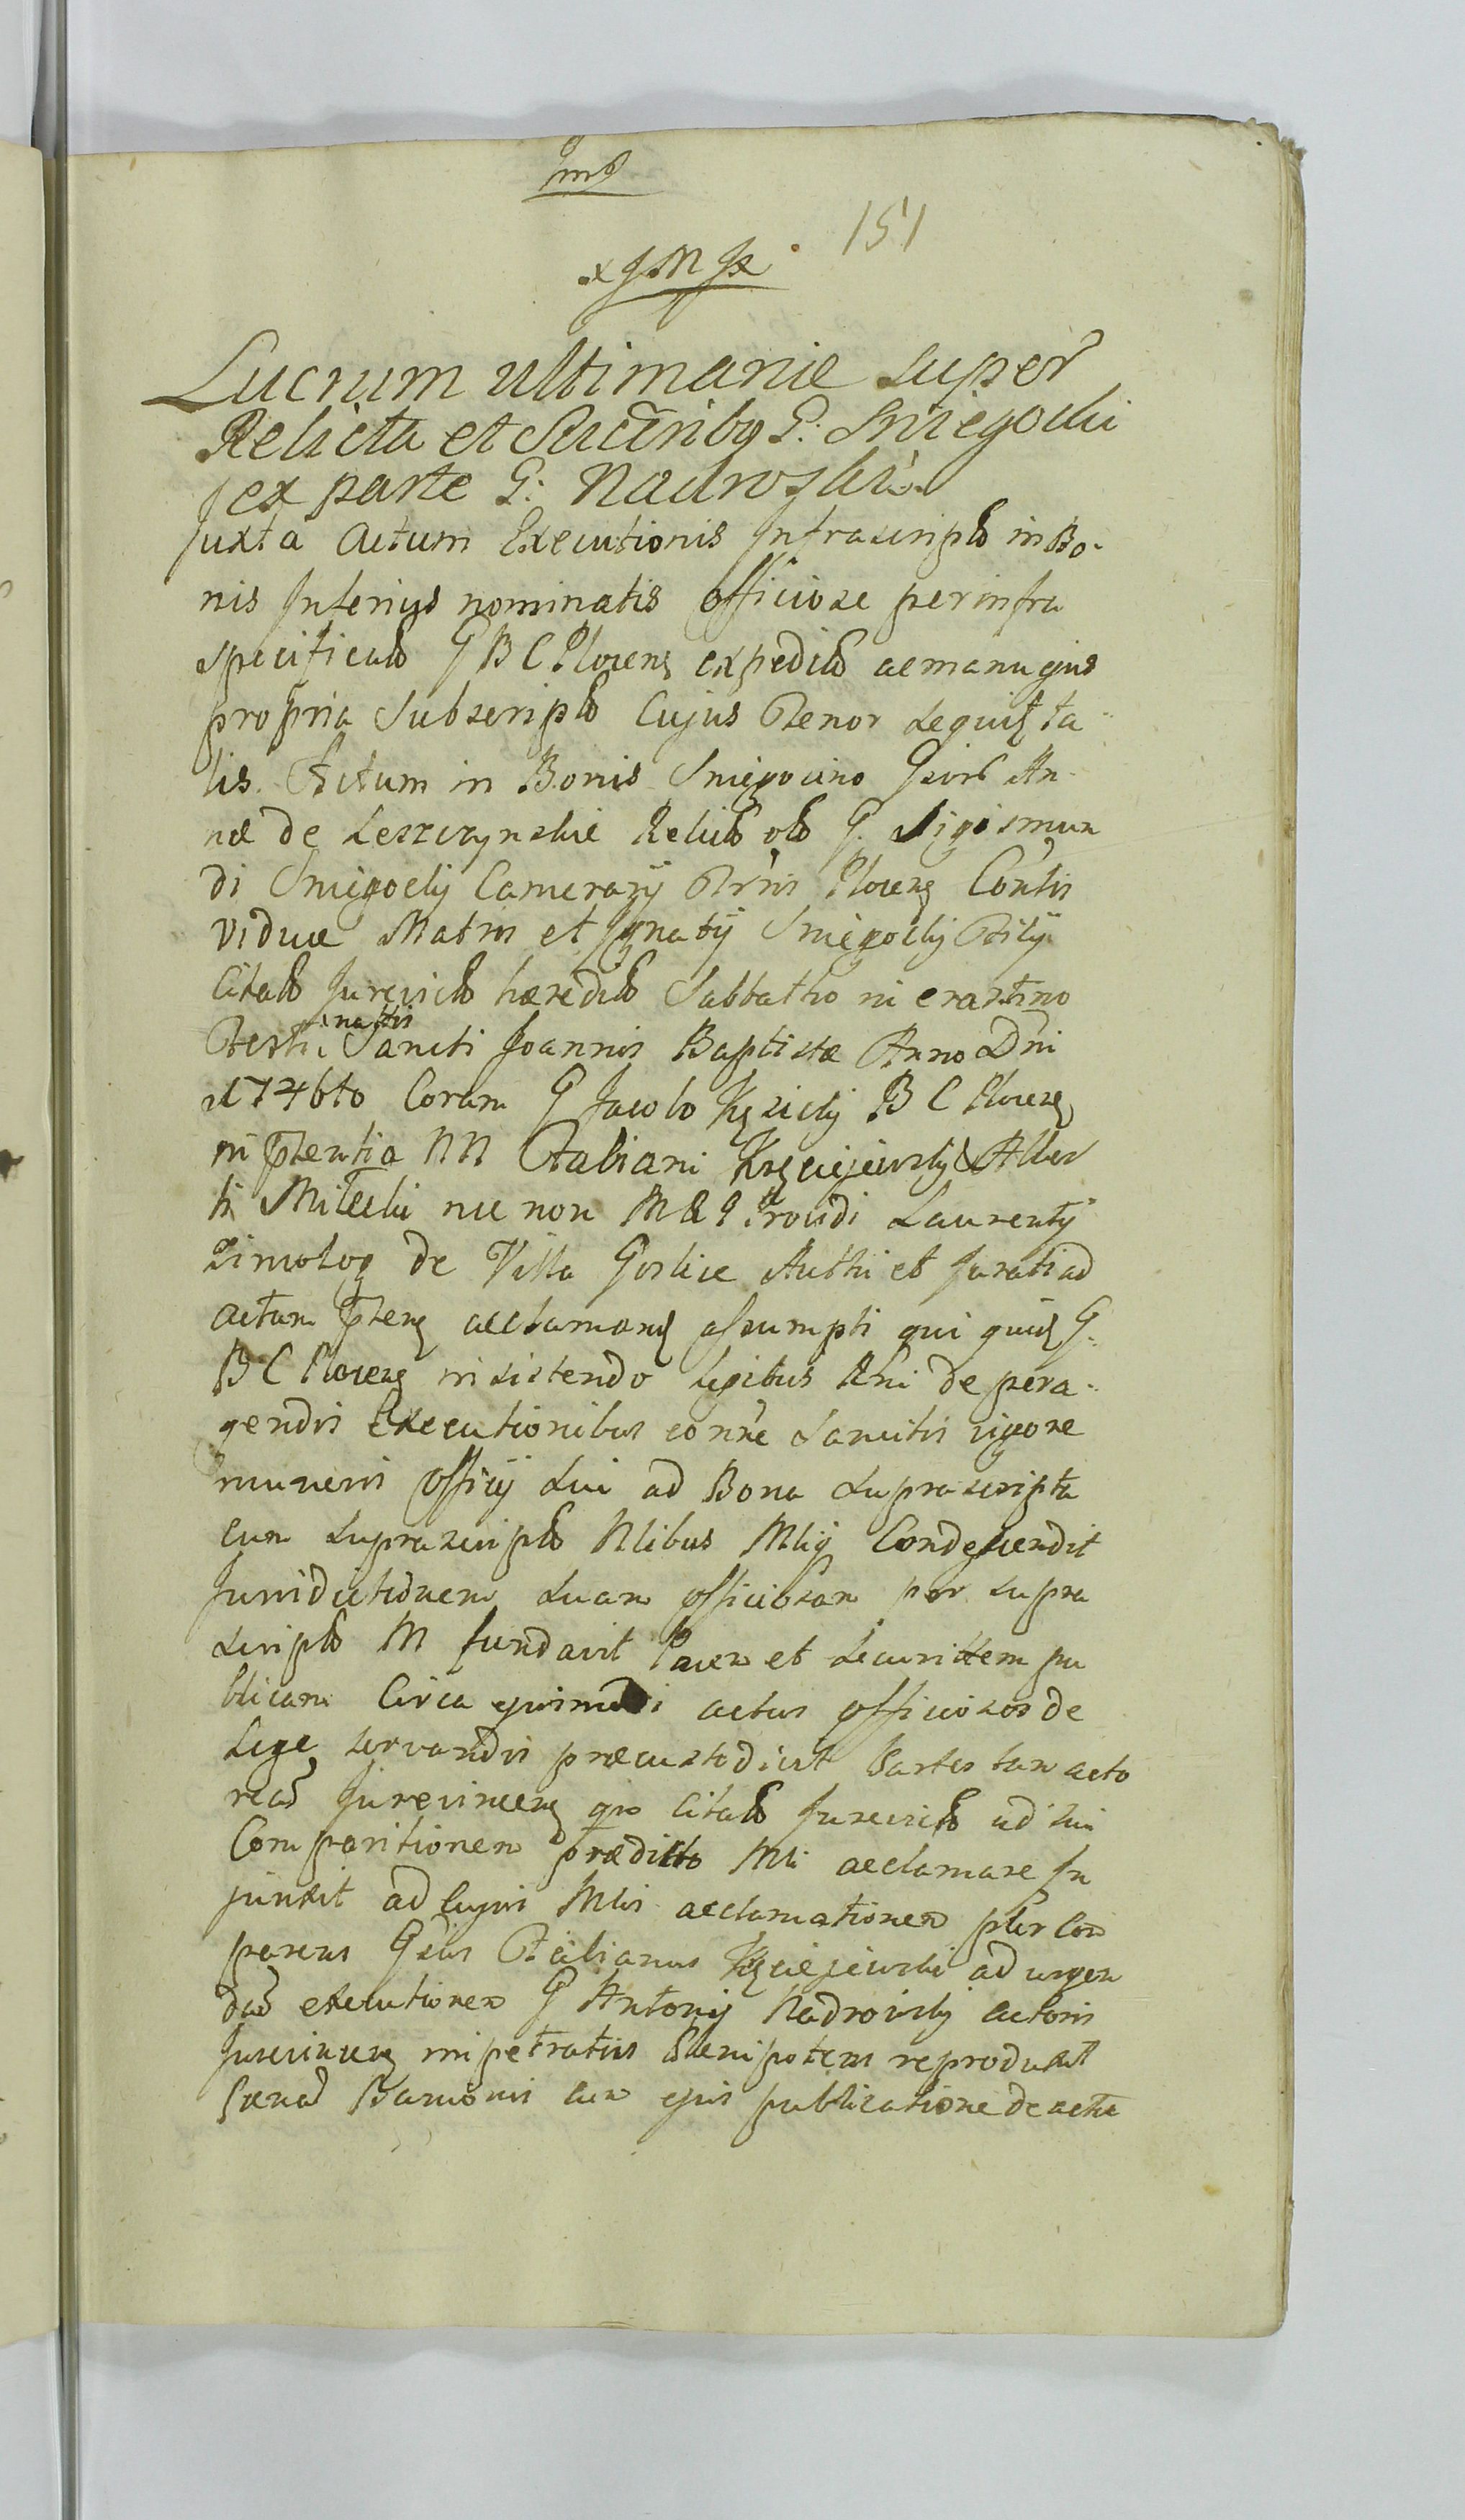 151
Lucrum ultimarie super
Relicta et Succribq G: Sniegocki
ex parte G: Nadroski
Juxta Actum Executionis Infrascripto in Bo-
nis Interius nominatis officiose per infra
specificato G B C Plocens expedito ac manu ejus
propria Subscripto Cujus Tenor sequit ta
lis. Actum in Bonis Sniegocino Gsiorum An
næ de Leszczynskie Relicto olo G. Sigismun
di Sniegocky Camerarij Plocens Contis
viduæ Matris et Ignatij Sniegocky Filij
Citato Jurevicto hæredito Sabbatho in crastino
Festi natis Sancti Joannis Baptistæ Anno Dni
1746to Coram G Jacobo Kęsicky B C Plocens
in pntia NN Fabiani Kręciejewsky & Alber
ti Milecki nec non M R Providi Laurentij
de Villa Gorlice Authi et Jurati ad
actum pntem acclamand assumpti qui quid G.
B C Plocens insistendo legibus Rni de pera-
gendis Executionibus conne Sancitis vigore
muneris Officij sui ad Bona suprascripta
cum suprascripto Nlibus Mlig Condescendit
Jurisdictionem suam officiosam per supra
scripto M fundavit Pacem et securittem pu
blicam Circa ejusmodi actus officiosos de
Lege servandis præcustodivit Partes tam acto
ream Jurevincens quo Citato Jurevicto ad sui
Comparitionem prædicto Mli acclamare In
junxit ad Cujus Mlis acclamationem pler Com
parens Gsus Fabianus Kręciejewski ad urgen
dam executionem G Antonij Nadrowsky actoris
Jurevincens impetratus Plenipotens reproduxit
pœnam Bannionis cum ejus publicatione de actu